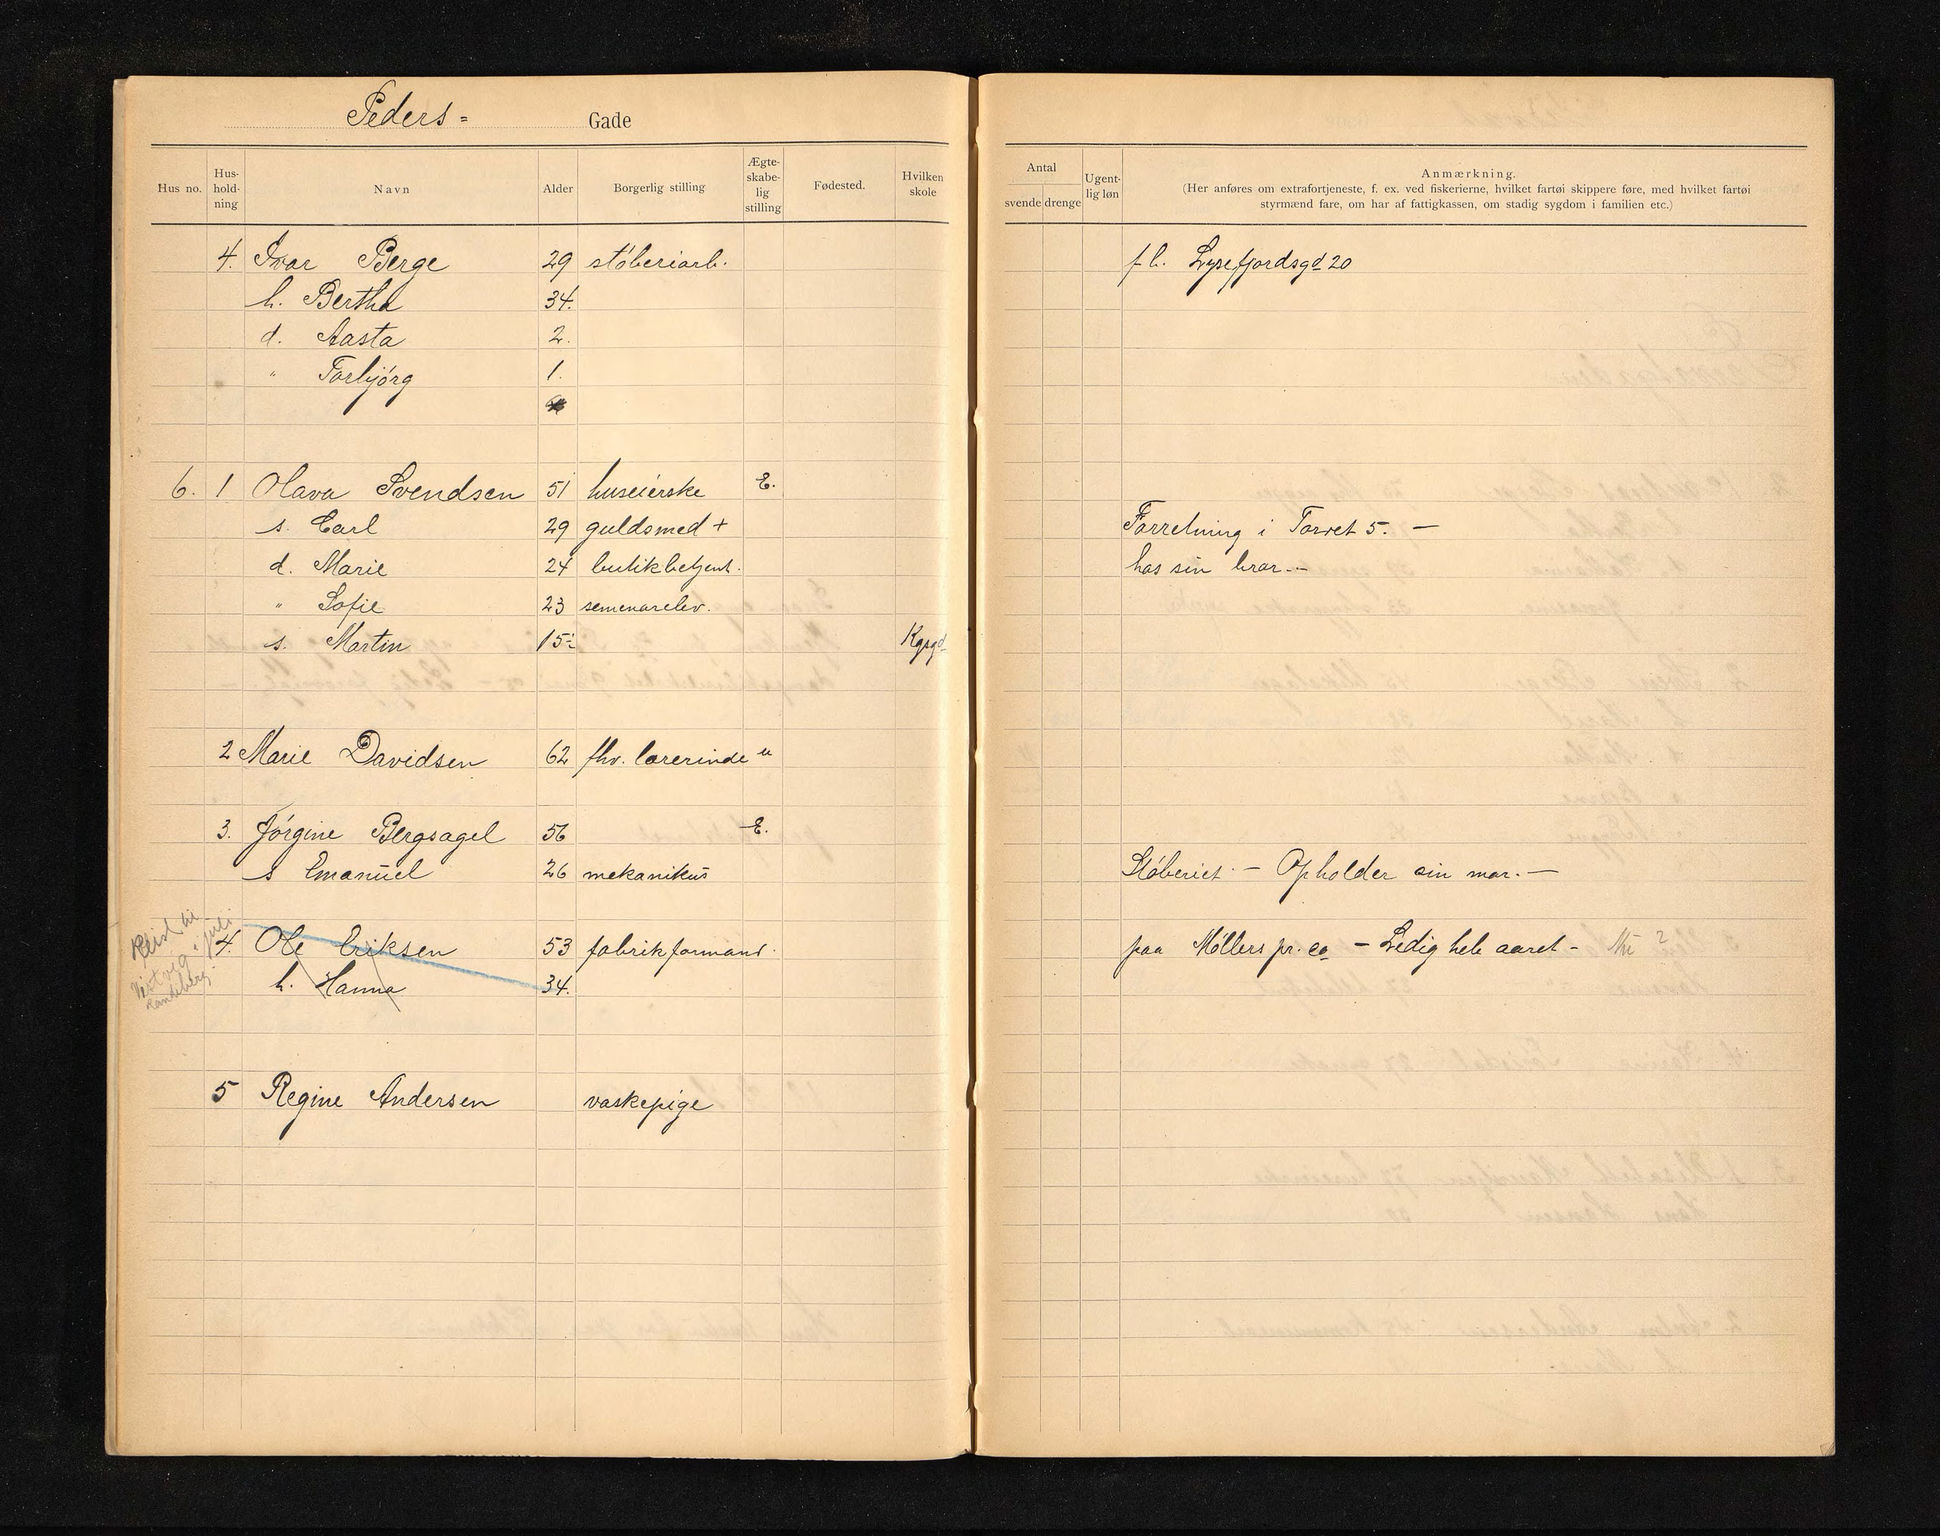 Peders= Gade
Hus no. Hus-hold-ning Navn Alder Borgerlig stilling Ægte-skabe-lig stilling Fødested. Hvilken skole
Antal svende drenge Ugent-lig løn Anmærkning.
(Her anføres om extrafortjeneste, f. ex. ved fiskerierne, hvilket fartøi skippere føre, med hvilket fartøi
styrmænd fare, om har af fattigkassen, om stadig sygdom i familien etc.)
4. Ivar Berge 29 støberiarb. f. h. Lysefjordsgd 20
h. Bertha 34.
d. Aasta 2.
" Torbjörg 1.
6. 1 Olava Svendsen 51 huseierske E.
s. Carl 29 guldsmed + Forretning i Torvet 5. —
d. Marie 24 butikbetjent. hos sin bror. -
" Sofie 23 semenarelev.
s. Martin 15 Kgsgd
2 Marie Davidsen 62 fhv. lærerinde u
3. Jörgine Bergsagel 56 E.
s Emanuel 26 mekanikus Støberiet - Opholder sin mor. —
Reist til
Vistvig i juli
Randeberg.
4. Ole Eriksen 53 fabrikformand. paa Møllers pr. co — Ledig hele aaret -
h. Hanna 34.
5 Regine Andersen vaskepige